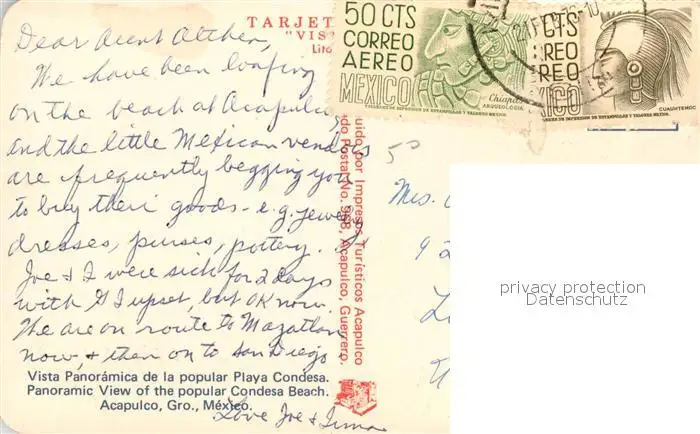 TARJET
"VIS
Lito
Dear Aunt
We have been loafing
on the beach at Acapulco,
and the little Mexican vendors
are frequently begging you
to buy their goods - e.g. jewelry
dresses, purses, pottery.
Joe & I were sick for 2 days
with GI upset, but OK now.
We are en route to Mazatlan
now, & then on to San Diego
Love Joe &
Vista Panorámica de la popular Playa Condesa.
Panoramic View of the popular Condesa Beach.
Acapulco, Gro., México.
uido por Impresos Turísticos Acapulco
do Postal No. 568, Acapulco, Guerrero.
50 CTS
CORREO
AEREO
MEXICO
Chiapas
ARQUEOLOGIA
TALLERES DE IMPRESION DE ESTAMPILLAS Y VALORES MEXICO
CTS
REO
REO
ICO
CUAUHTEMOC
TALLERES DE IMPRESION DE ESTAMPILLAS Y VALORES MEXICO
50
Mrs.
9 2
privacy protection
Datenschutz